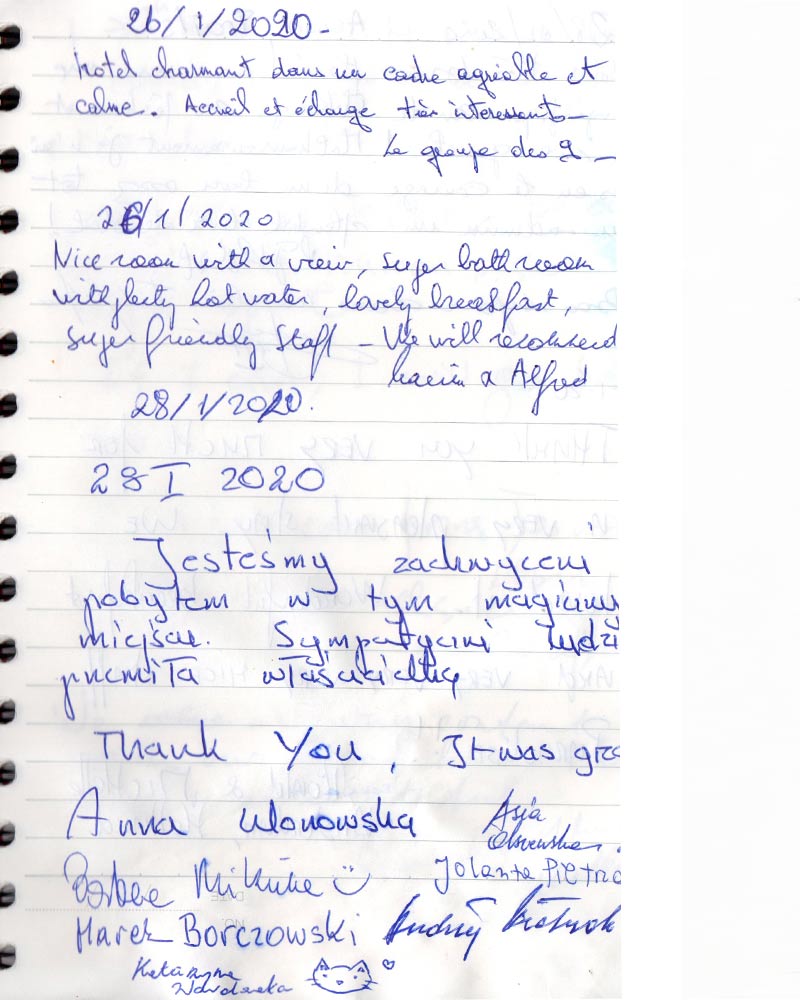 26/1/2020-
hotel charmant dans un cadre agréable et
calme. Accueil et échange très interessants-
Le groupe des 9-
26/1/2020
Nice room with a view, super bathroom
with plenty hot water, lovely breakfast,
super friendly Staff - We will recommend
& Alfred
28/1/2020.
28 I 2020
Jesteśmy zachwyceni
pobytem w tym magicznym
miejscu. Sympatyczni ludzi
przemiła właścicielka
Thank You, It was gre
Anna
Asia
Jolanta Pietrz
Marek Borczowski
Andrzej
Katarzyna